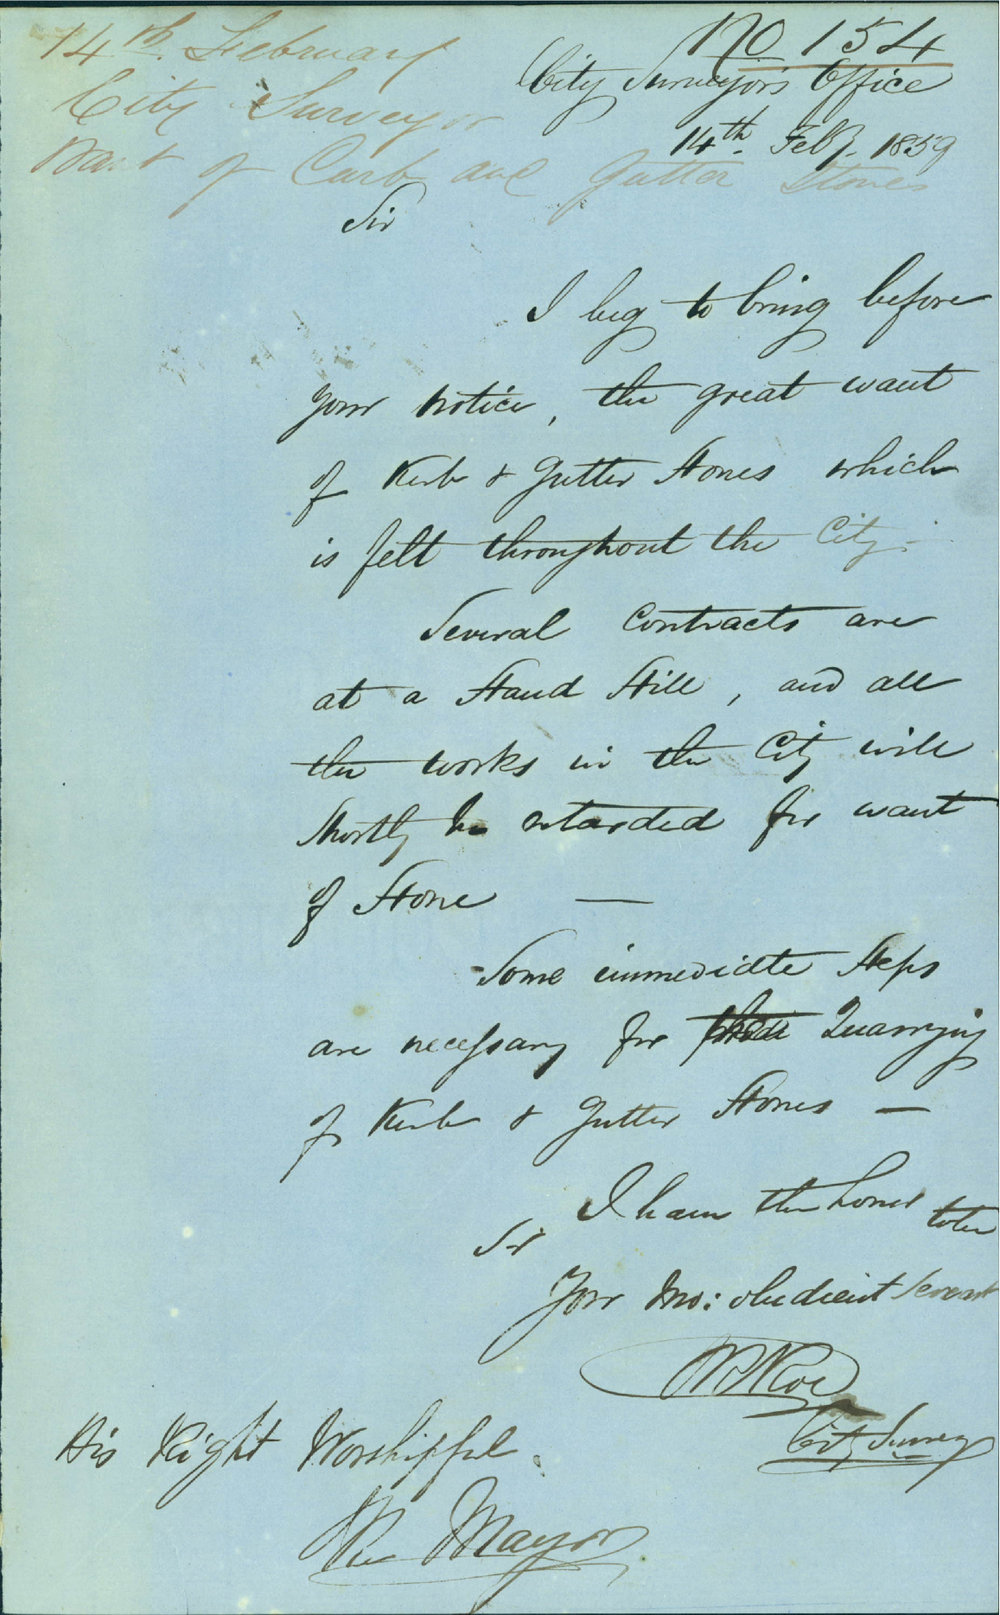 14th. February
City Surveyor
Want of Curb and Gutter Stones
No 154
City Surveyor's Office
14th. Feby. 1859
Sir
I beg to bring before
your notice, the great want
of Kerb & Gutter Stones which
is felt throughout the City.
Several Contracts are
at a Stand Still, and all
the works in the City will
Shortly be retarded for want
of Stone —
Some immediate Steps
are necessary for Quarrying
of Kerb & Gutter Stones —
I have the honor to be
Sir
Your Mo: obedient Servant
City Surveyor
His Right Worshipful
The Mayor